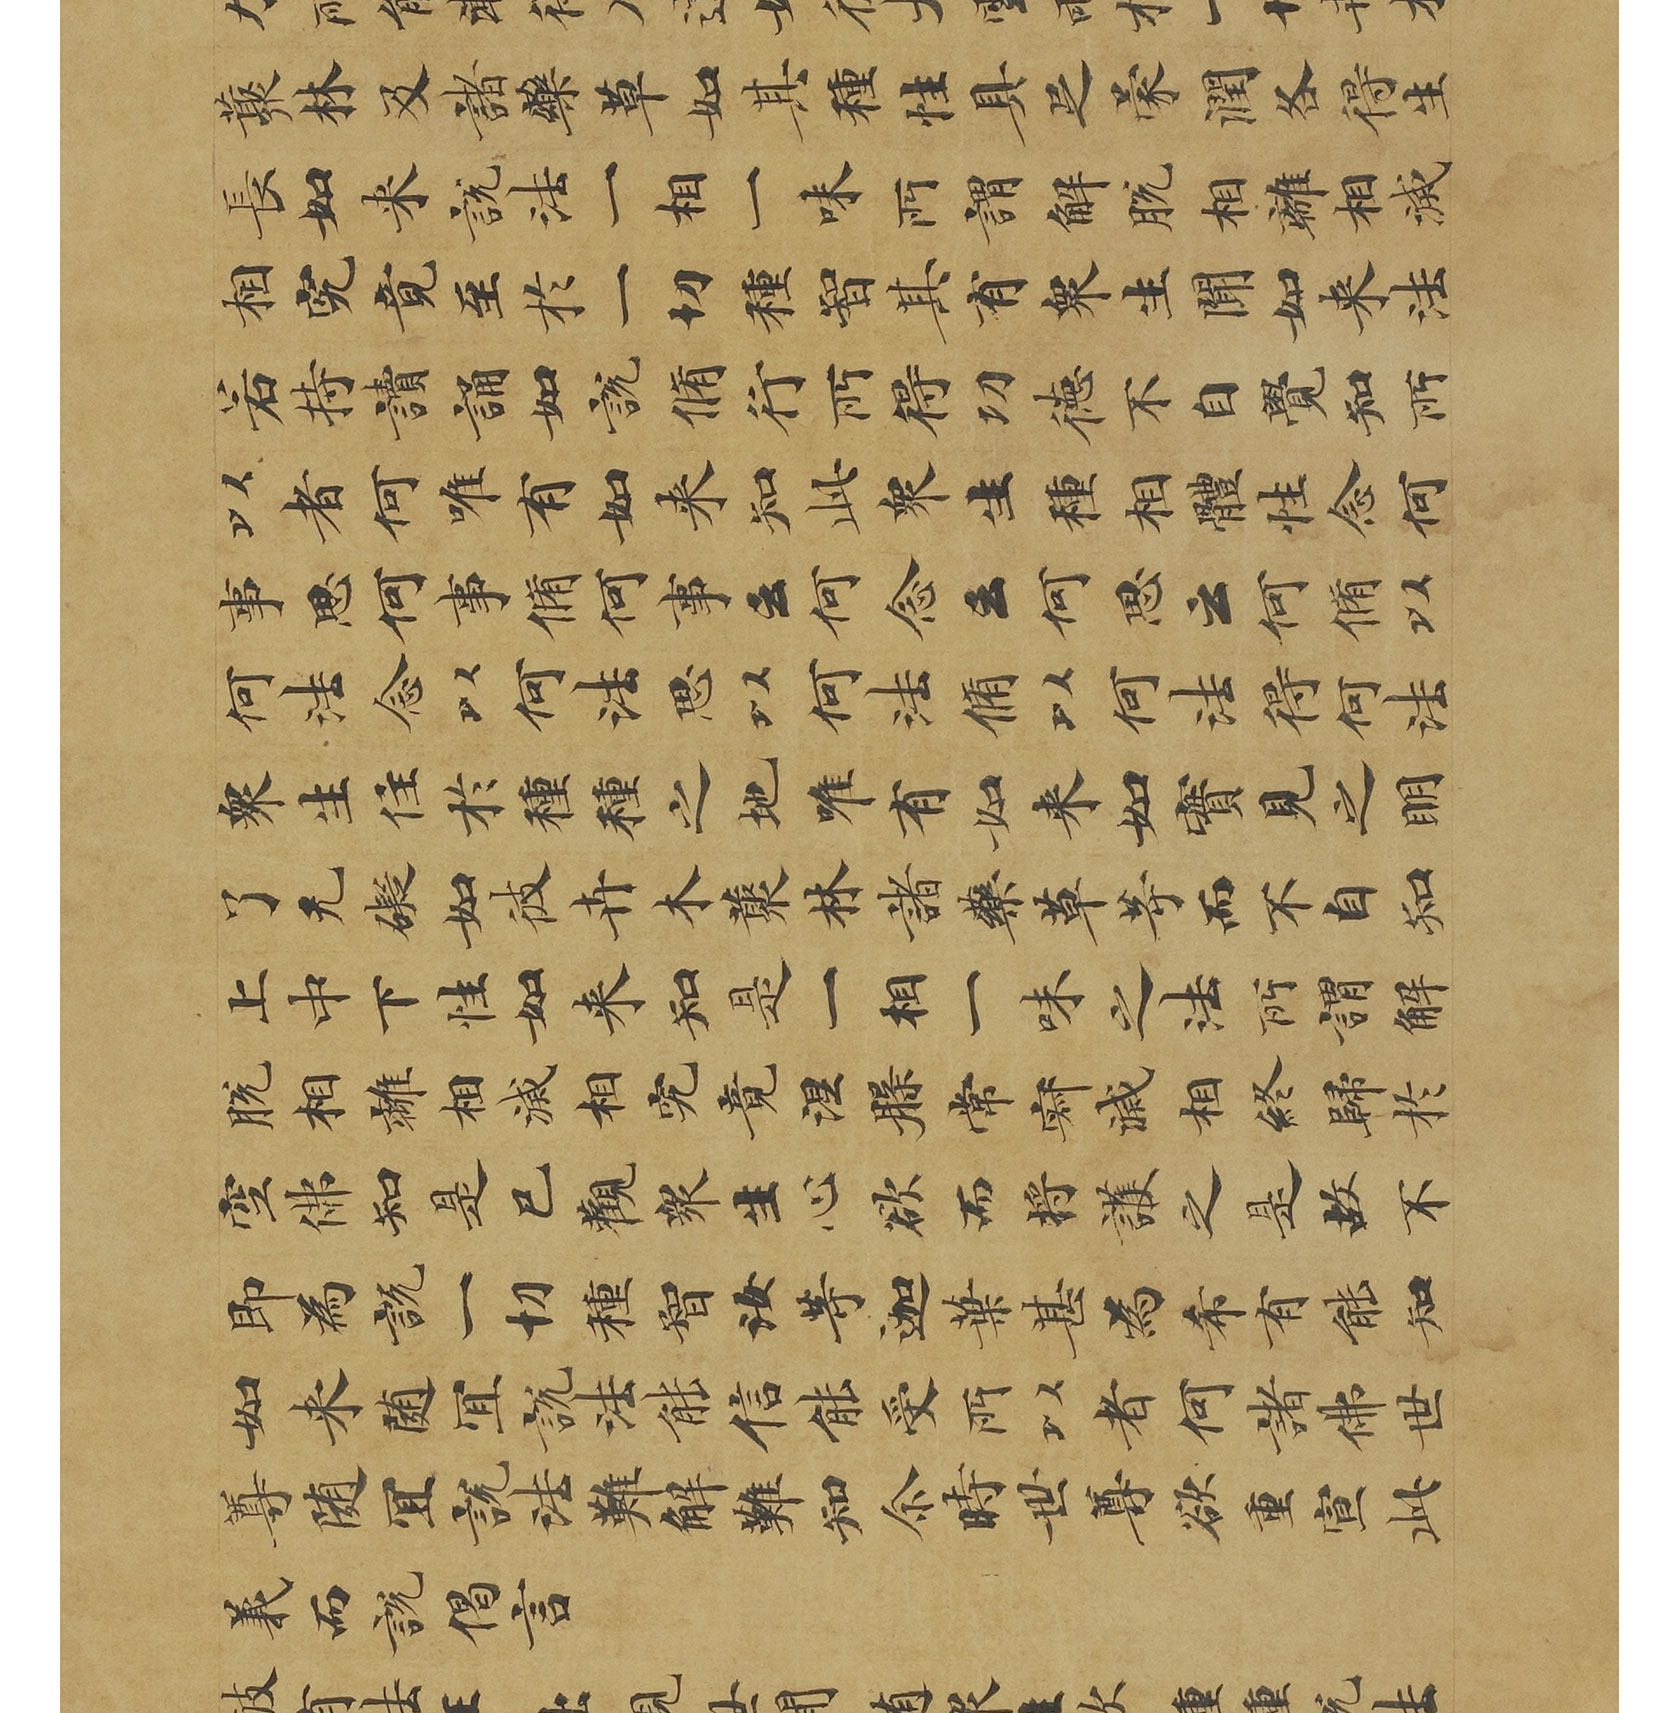 藂林及諸藥草如其種性具足蒙潤各得生
長如来說法一相一味所謂解脫相離相滅
相究竟至於一切種智其有衆生聞如来法
若持讀誦如說脩行所得功德不自覺知所
以者何唯有如来知此衆生種相體性念何
事思何事脩何事云何念云何思云何脩以
何法念以何法思以何法脩以何法得何法
衆生住於種種之地唯有如来如實見之明
了无礙如彼卉木藂林諸藥草等而不自知
上中下性如来知是一相一味之法所謂解
脫相離相滅相究竟涅槃常寂滅相終歸於
空佛知是已觀衆生心欲而將護之是故不
即為說一切種智汝等迦葉甚為希有能知
如来随宜說法能信能受所以者何諸佛世
尊随宜說法難解難知尒時世尊欲重宣此
義而說偈言